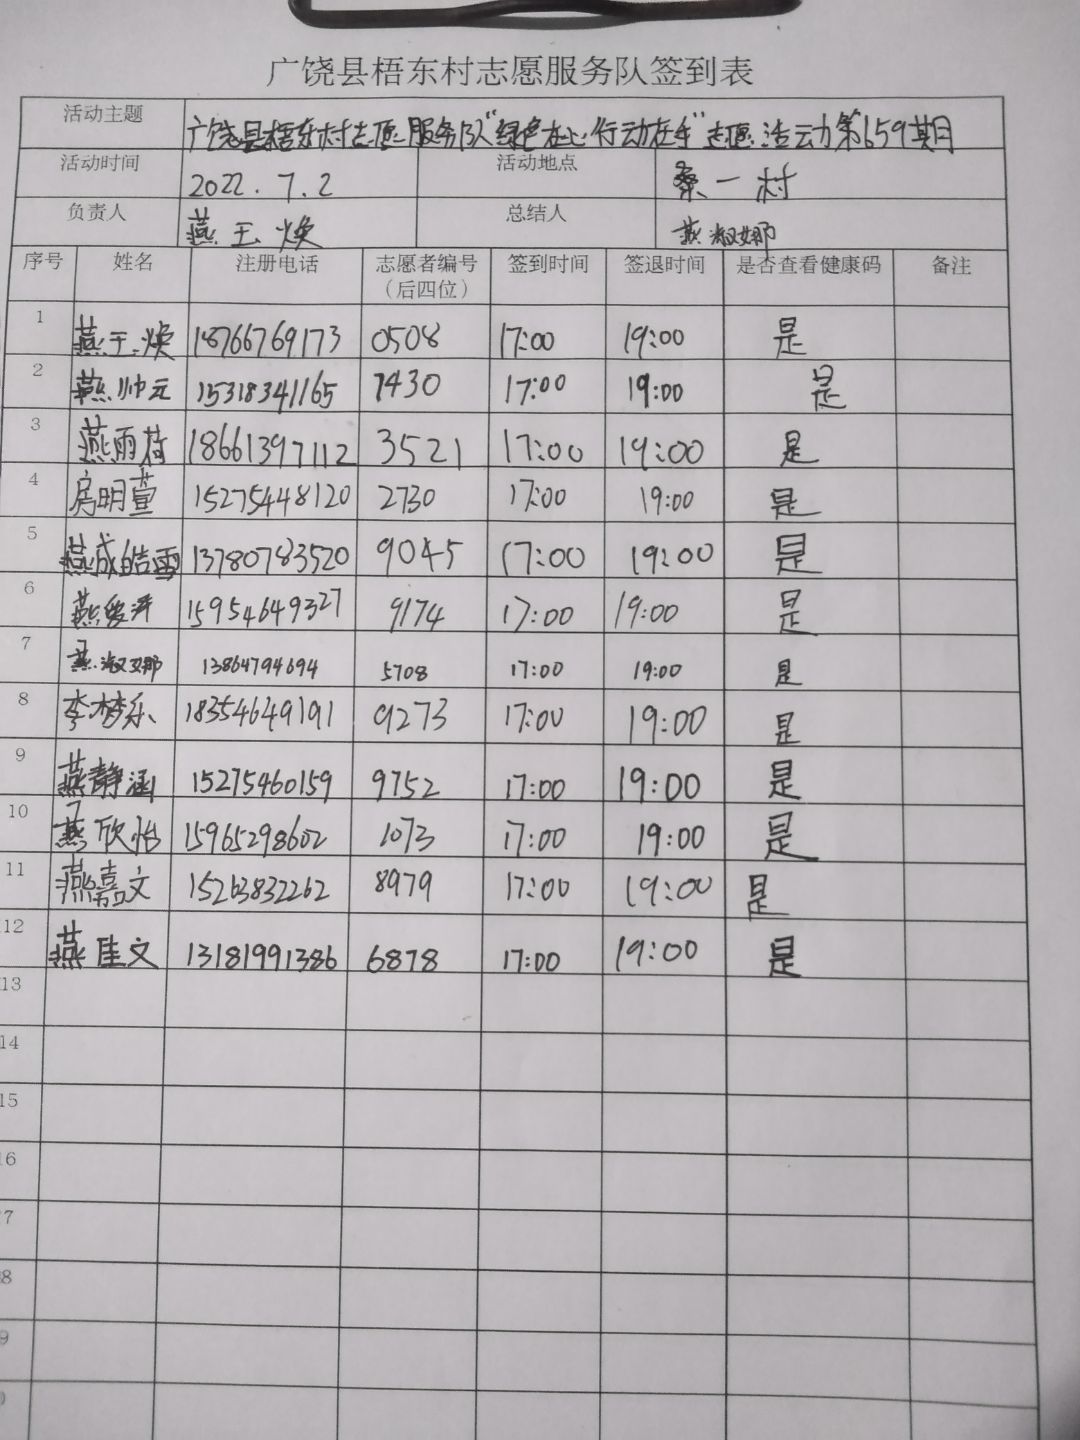 广饶县梧东村志愿服务队签到表
活动主题 广饶县梧东村志愿服务队“绿色在心 行动在手”志愿活动第159期
活动时间 2022.7.2 活动地点 桑一村
负责人 燕玉焕 总结人 燕淑娜
序号 姓名 注册电话 志愿者编号（后四位） 签到时间 签退时间 是否查看健康码 备注
1 燕玉焕 18766769173 0508 17:00 19:00 是
2 燕帅元 15318341165 7430 17:00 19:00 是
3 燕雨荷 18661397112 3521 17:00 19:00 是
4 房明萱 15275448120 2730 17:00 19:00 是
5 燕成皓雪 13780783520 9045 17:00 19:00 是
6 燕 15954649327 9174 17:00 19:00 是
7 燕淑娜 13864794694 5708 17:00 19:00 是
8 李梦乐 18354649191 9273 17:00 19:00 是
9 燕静涵 15275460159 9752 17:00 19:00 是
10 燕欣怡 15965298602 1073 17:00 19:00 是
11 燕嘉文 15263832262 8979 17:00 19:00 是
12 燕佳文 13181991386 6878 17:00 19:00 是
13
14
15
16
7
8
9